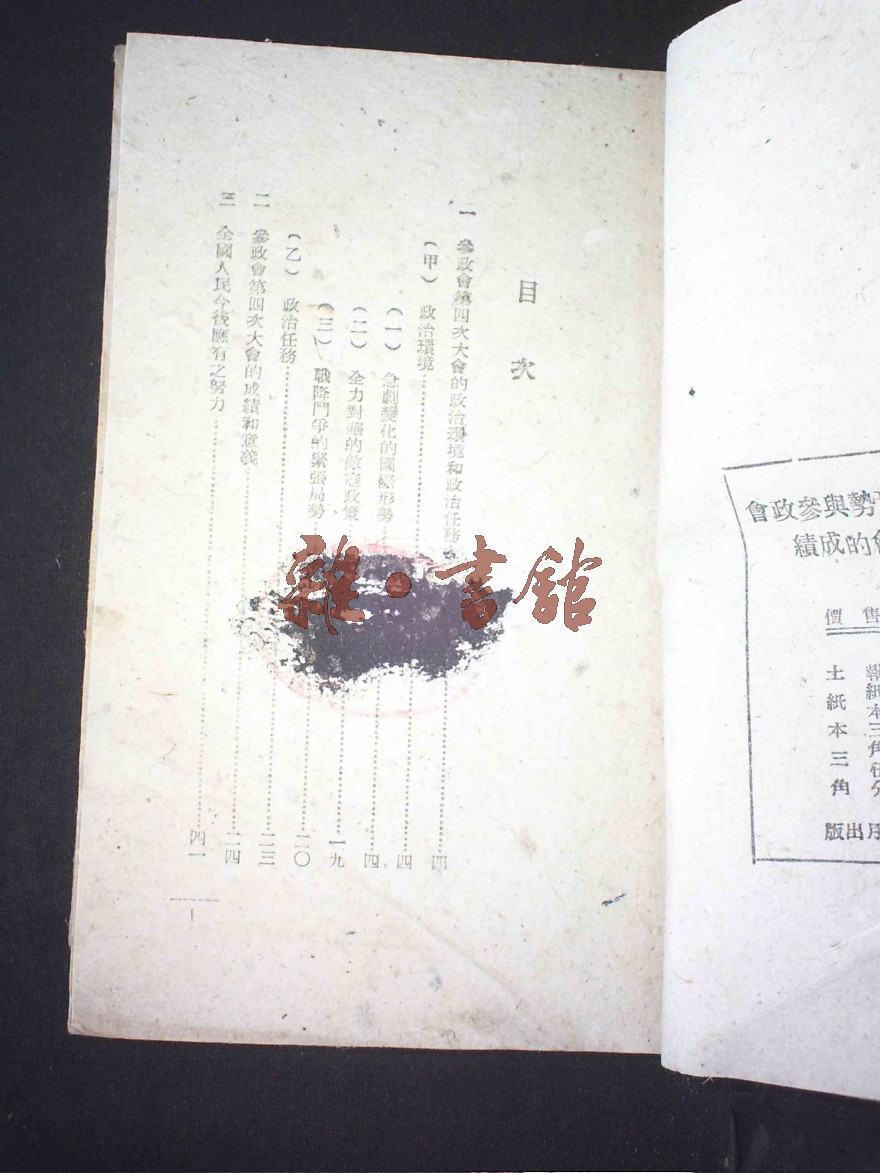 目次
一 參政會第四次大會的政治環境和政治任務…………四
(甲) 政治環境…………四
(一) 急劇變化的國際形勢…………四
(二) 全力對華的敵寇政策…………一九
(三) 戰降鬥爭的緊張局勢…………二〇
(乙) 政治任務…………二三
二 參政會第四次大會的成績和意義…………二四
三 全國人民今後應有之努力…………四一
一
雜·書館
勢與參政會
的成績
售價
報紙本三角伍分
土紙本三角
月出版